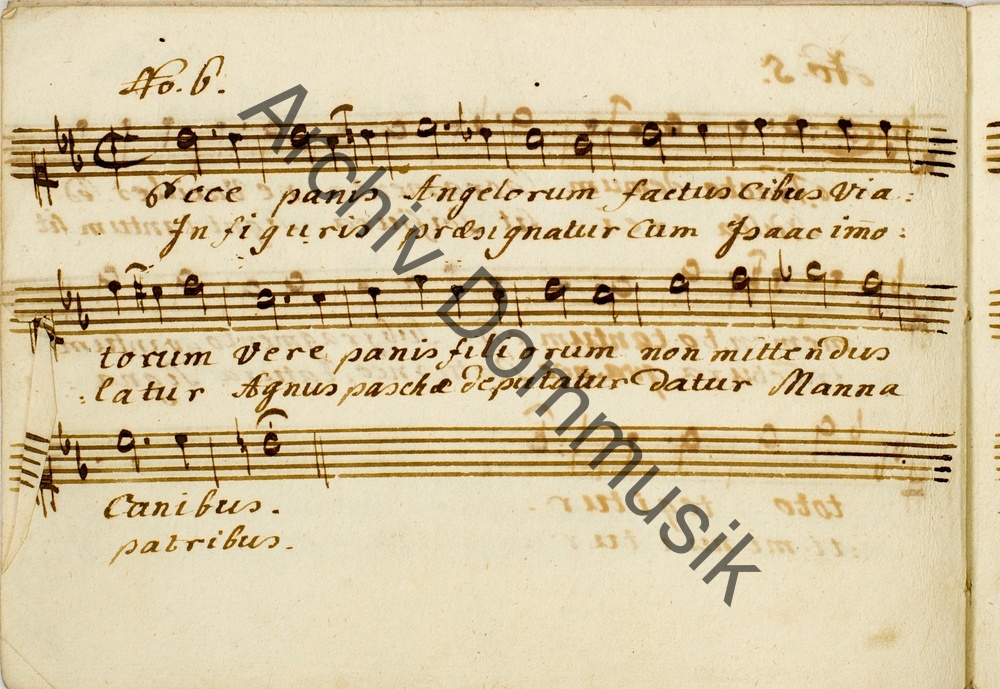 No. 6.
Ecce panis Angelorum factus Cibus Via:
In figuris præsignatur Cum Isaac im̄o:
torum Vere panis filiorum non mittendus
:latur Agnus paschæ deputatur Datur Manna
Canibus.
patribus.
Archiv Dommusik